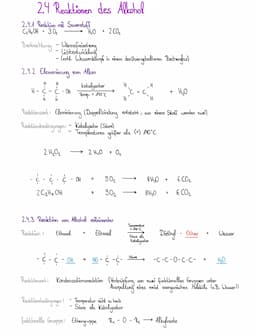 2.4 Reaktionen des Alkohol
2.4.1 Reaktion mit Sauerstoff
C₂H₅OH + 3O₂ → H₂O + 2CO₂
Beobachtung: - Wärme
- Lichtentwicklung
2.4.2 Eliminierung von Alkan
H - C - C - OH Katalysator → C = C + H₂O
Reaktionsart: Eliminierung (Doppelbindung entsteht, aus einem Stoff werden zwei)
Reaktionsbedingungen: - Katalysator (Säure)
- Temperaturen größer als 140°C
2 H₂O₂ → 2 H₂O + O₂
- C - C - C - OH + 9O₂ → 8H₂O + 6CO₂
2C₃H₇OH + 9O₂ → 8H₂O + 6CO₂
2.4.3 Reaktion von Alkohol miteinander
Reaktion: Ethanol + Ethanol → Diethyl-Ether + Wasser
- C - C - OH + HO - C - C - → -C-C-O-C-C- + H₂O
Reaktionsart: Kondensationsreaktion (Verbindung von zwei funktionellen Gruppen unter
Abspaltung eines meist anorganischen Moleküls (z.B. Wasser))
Reaktionsbedingungen: - Temperatur nicht zu hoch
- Säure als Katalysator
funktionelle Gruppe: Ethergruppe R₁ - O - R₂ →